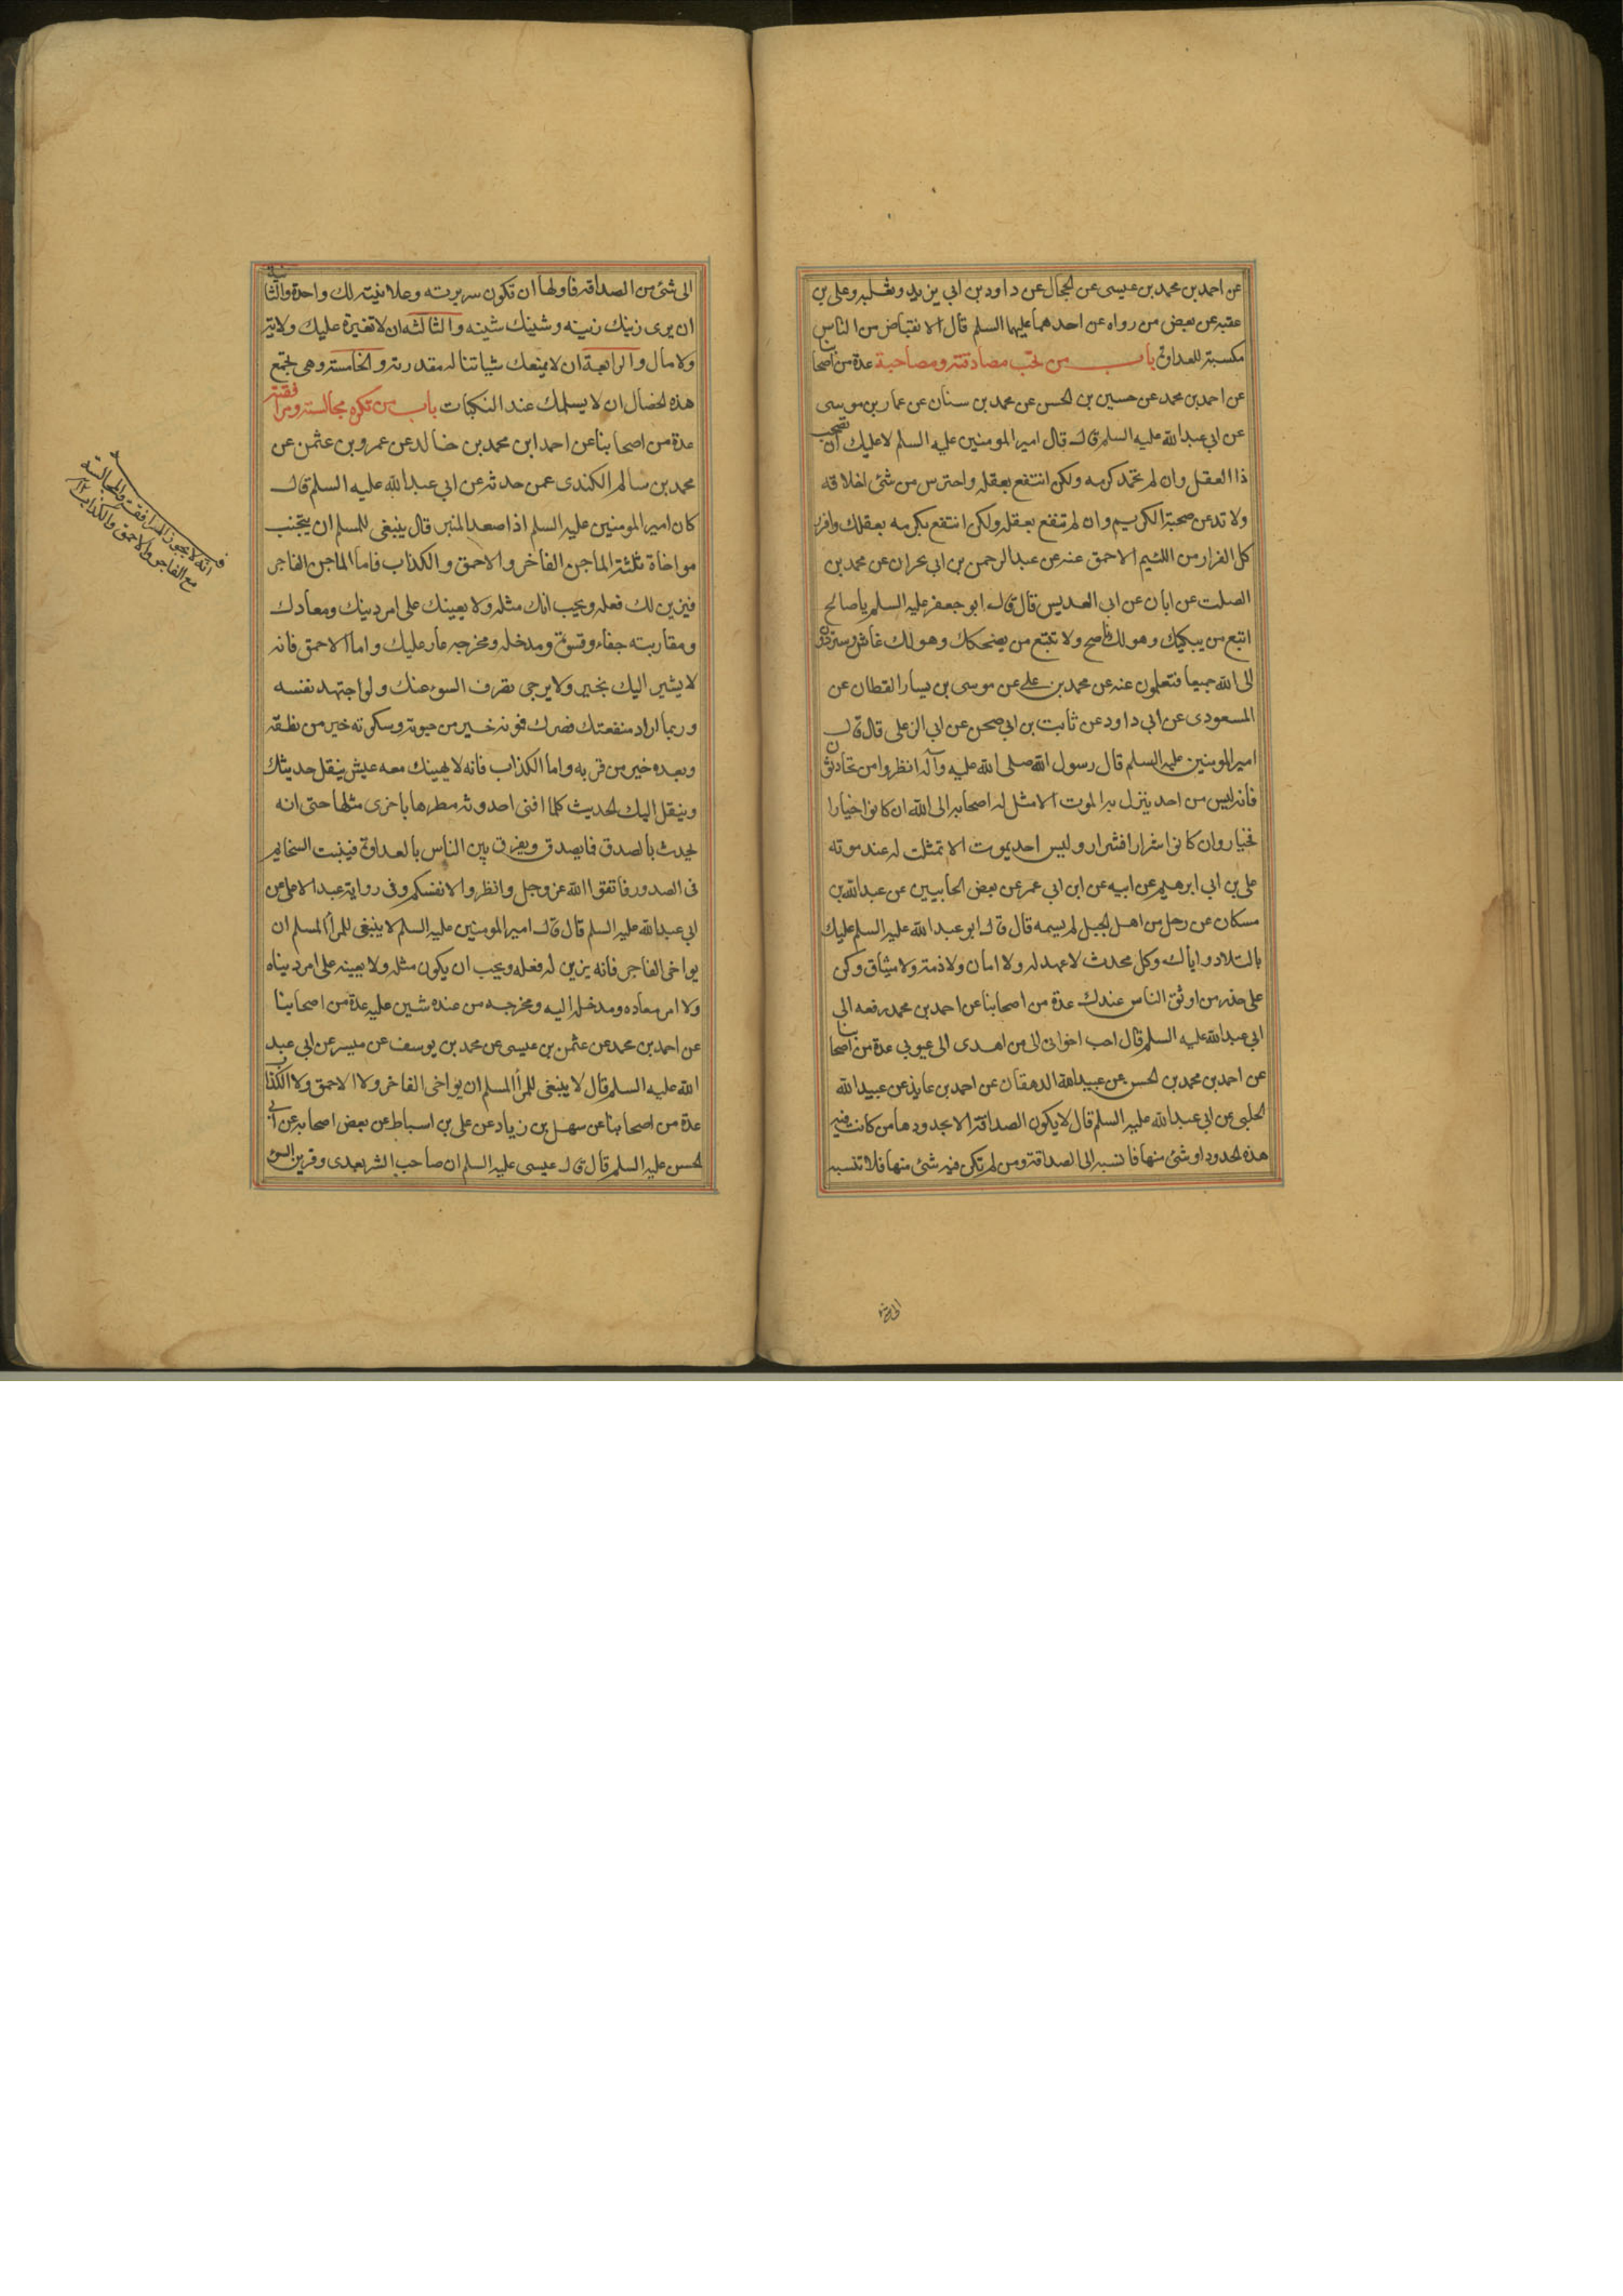 عن احمد بن محمد بن عيسى عن الحجال عن داود بن ابي يزيد وثعلبه وعلى بن
عقبه عن بعض من رواه عن احدهما عليهما السلم قال الانقباض من الناس
مكسبة للعداوة باب من تحب مصادقته ومصاحبة عدة من اصحابنا
عن احمد بن محمد عن حسين بن الحسن عن محمد بن سنان عن عمار بن موسى
عن ابى عبد الله عليه السلم قال قال امير المومنين عليه السلم لا عليك ان تصحب
ذا العقل وان لم تحمد كرمه ولكن انتفع بعقله واحترس من شئ اخلاقه
ولا تدعن صحبة الكريم وان لم تنفع بعقله ولكن انتفع بكرمه بعقلك وافرر
كل الفرار من اللئيم الاحمق عنه عن عبد الرحمن بن ابى بحران عن محمد بن
الصلت عن ابان عن ابى العديس قال قال ابو جعفر عليه السلم يا صالح
اتبع من يبكيك وهو لك ناصح ولا تتبع من يضحكك وهو لك غاش وستردون
الى الله جميعا فتعلمون عنه عن محمد بن على عن موسى بن يسار القطان عن
المسعودى عن ابى داود عن ثابت بن ابى صحن عن ابى الزعلى قال قال
امير المومنين عليه السلم قال رسول الله صلى الله عليه وآله انظروا من تحادثون
فانه ليس من احد ينزل به الموت الا مثل له اصحابه الى الله ان كانوا خيارا
فخيار وان كانوا شرارا فشرار وليس احد يموت الا تمثلت له عند موته
على بن ابى ابرهيم عن ابيه عن ابن ابى عمر عن بعض الحلبيين عن عبد الله بن
مسكان عن رجل من اهل الجبل لم يسمه قال قال ابو عبد الله عليه السلم عليك
بالتلاد واياك وكل محدث لا عهد له ولا امان ولا ذمة ولا ميثاق وكن
على حذر من اوثق الناس عندك عدة من اصحابنا عن احمد بن محمد رفعه الى
ابى عبد الله عليه السلم قال احب اخوانى الى من اهدى الى عيوبى عدة من اصحابنا
عن احمد بن محمد بن الحسن عن عبيد الله الدهقان عن احمد بن عايذ عن عبيد الله
الحلبى عن ابى عبد الله عليه السلم قال لا يكون الصداقة الا بحدودها من كانت فيه
هذه الحدود او شئ منها فانسبه الى الصداقة ومن لم تكن فيه شئ منها فلا تنسبه
الى شئ
الى شئ من الصداقة فاولها ان تكون سريرته وعلانيته لك واحدة والثانية
ان يرى زينك زينه وشينك شينه والثالثه ان لا تغيره عليك ولاية
ولا مال والرابعة ان لا يمنعك شيا تناله مقدرته والخامسة وهى تجمع
هذه الخصال ان لا يسلمك عند النكبات باب من تكره مجالسته ومرافقته
عدة من اصحابنا عن احمد ابن محمد بن خالد عن عمرو بن عثمن عن
محمد بن سالم الكندى عمن حدثه عن ابى عبد الله عليه السلم قال
كان امير المومنين عليه السلم اذا صعد المنبر قال ينبغى للمسلم ان يتجنب
مواخاة ثلثة الماجن الفاخر والاحمق والكذاب فاما الماجن الفاجر
فيزين لك فعله ويحب انك مثله ولا يعينك على امر دينك ومعادك
ومقاربته جفاء وقسوة ومدخله ومخرجه عار عليك واما الاحمق فانه
لا يشير اليك بخير ولا يرجى لصرف السوء عنك ولو اجتهد نفسه
وربما اراد منفعتك فضرك فموته خير من حيوته وسكوته خير من نطقه
وبعده خير من قربه واما الكذاب فانه لا يهينك معه عيش ينقل حديثك
وينقل اليك الحديث كلما افنى احدوثة مطرها باخرى مثلها حتى انه
يحدث بالصدق فما يصدق ويفرق بين الناس بالعداوة فينبت السخايم
فى الصدور فاتقوا الله عز وجل وانظروا لانفسكم وفى رواية عبد الاعلى عن
ابى عبد الله عليه السلم قال قال امير المومنين عليه السلم لا ينبغى للمرأ المسلم ان
يواخى الفاجر فانه يزين له فعله ويحب ان يكون مثله ولا يعينه على امر دنياه
ولا امر معاده ومدخله اليه ومخرجه من عنده شين عليه عدة من اصحابنا
عن احمد بن محمد عن عثمن بن عيسى عن محمد بن يوسف عن ميسر عن ابى عبد
الله عليه السلم قال لا ينبغى للمرأ المسلم ان يواخى الفاخر ولا الاحمق ولا الكذاب
عدة من اصحابنا عن سهل بن زياد عن على بن اسباط عن بعض اصحابه عن ابى
الحسن عليه السلم قال قال عيسى عليه السلم ان صاحب الشر يعدى وقرين السوء
فـ انّه لا يجوز المرافقة والمجالسة
مع الفاجر والاحمق والكذاب ١٢